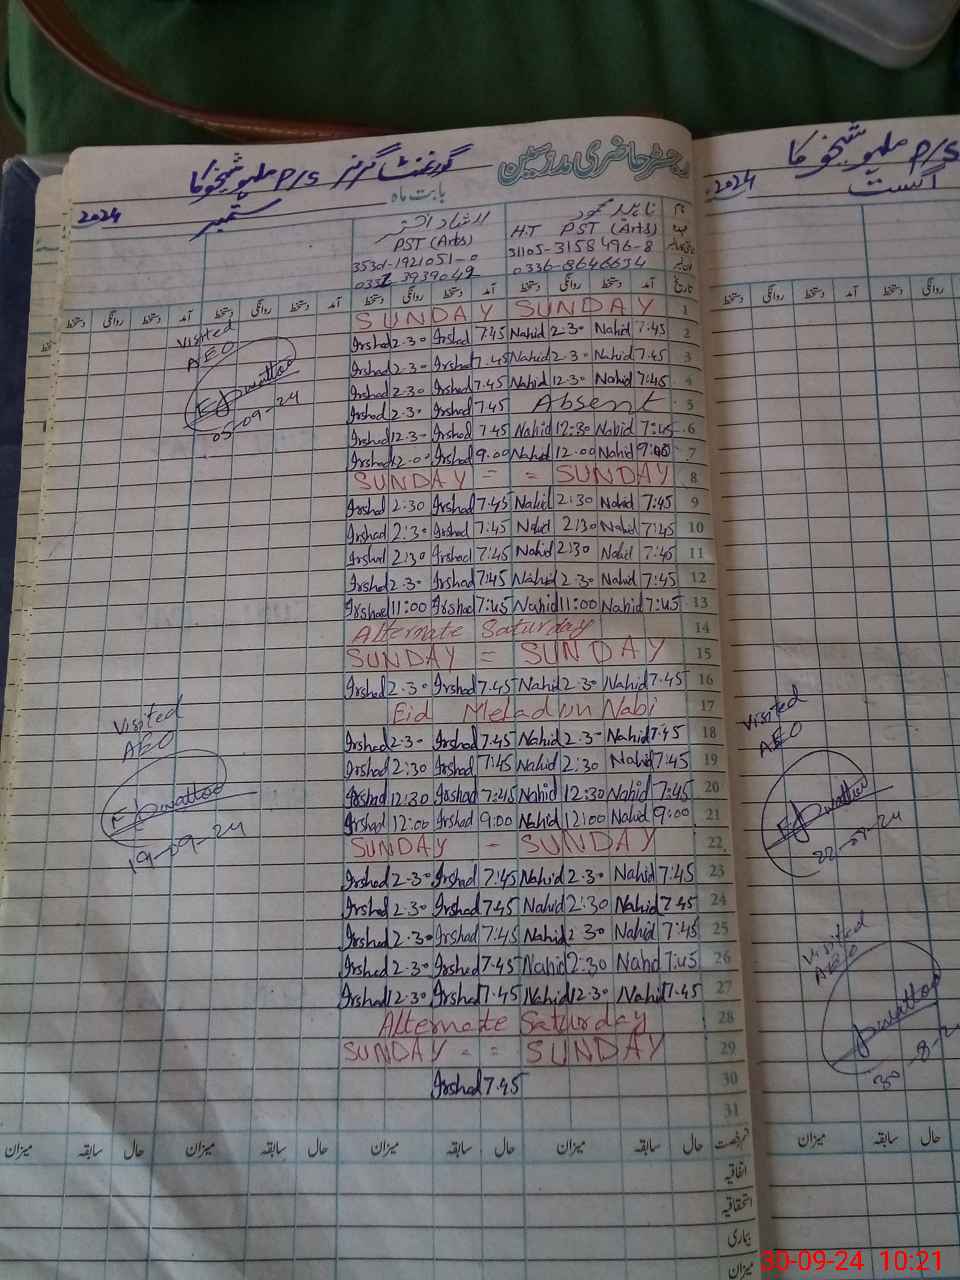 رجسٹر حاضری مدرسین
گورنمنٹ گرلز P/S
بابت ماہ ستمبر 2024
نام ناہید ارشاد اختر
H.T PST (Arts) PST (Arts)
31105-3158496-8
0336-8646634
تاریخ آمد دستخط روانگی دستخط آمد دستخط روانگی دستخط آمد دستخط روانگی دستخط
1 SUNDAY SUNDAY
2 7.45 Nahid 2.30 Nahid 7.45 Irshad 2.30 Irshad
3 7.45 Nahid 2.30 Nahid 7.45 Irshad 2.30 Irshad
4 7.45 Nahid 12.30 Nahid 7.45 Irshad 2.30 Irshad
5 Absent 7.45 Irshad 2.30 Irshad
6 7:45 Nahid 12:30 Nahid 7.45 Irshad 12.30 Irshad
7 9:00 Nahid 12.00 Nahid 9.00 Irshad 12.00 Irshad
8 SUNDAY = = SUNDAY
9 7:45 Nahid 2:30 Nahid 7.45 Irshad 2:30 Irshad
10 7:45 Nahid 2:30 Nahid 7.45 Irshad 2:30 Irshad
11 7:45 Nahid 2:30 Nahid 7:45 Irshad 2:30 Irshad
12 7:45 Nahid 2.30 Nahid 7:45 Irshad 2.30 Irshad
13 7:45 Nahid 11:00 Nahid 7:45 Irshad 11:00 Irshad
14 Alternate Saturday
15 SUNDAY = SUNDAY
16 7.45 Nahid 2.30 Nahid 7.45 Irshad 2.30 Irshad
17 Eid Meladun Nabi
18 7.45 Nahid 2.30 Nahid 7.45 Irshad 2.30 Irshad
19 7:45 Nahid 2:30 Nahid 7:45 Irshad 2:30 Irshad
20 7:45 Nahid 12:30 Nahid 7:45 Irshad 12:30 Irshad
21 9:00 Nahid 12:00 Nahid 9:00 Irshad 12:00 Irshad
22 SUNDAY - SUNDAY
23 7:45 Nahid 2.30 Nahid 7:45 Irshad 2.30 Irshad
24 7.45 Nahid 2:30 Nahid 7.45 Irshad 2.30 Irshad
25 7:45 Nahid 2.30 Nahid 7:45 Irshad 2.30 Irshad
26 7:45 Nahid 2:30 Nahid 7.45 Irshad 2.30 Irshad
27 7.45 Nahid 12.30 Nahid 7.45 Irshad 12.30 Irshad
28 Alternate Saturday
29 SUNDAY - = SUNDAY
30 7.45 Irshad
31
حال سابقہ میزان حال سابقہ میزان حال سابقہ میزان حال سابقہ میزان
اتفاقیہ
استحقاقیہ
بیماری
میزان
Visited
AEO
05-09-24
Visited
AEO
19-09-24
P/S
اگست 2024
آمد دستخط روانگی دستخط
Visited
AEO
Visited
AEO
حال سابقہ میزان
30-09-24 10:21